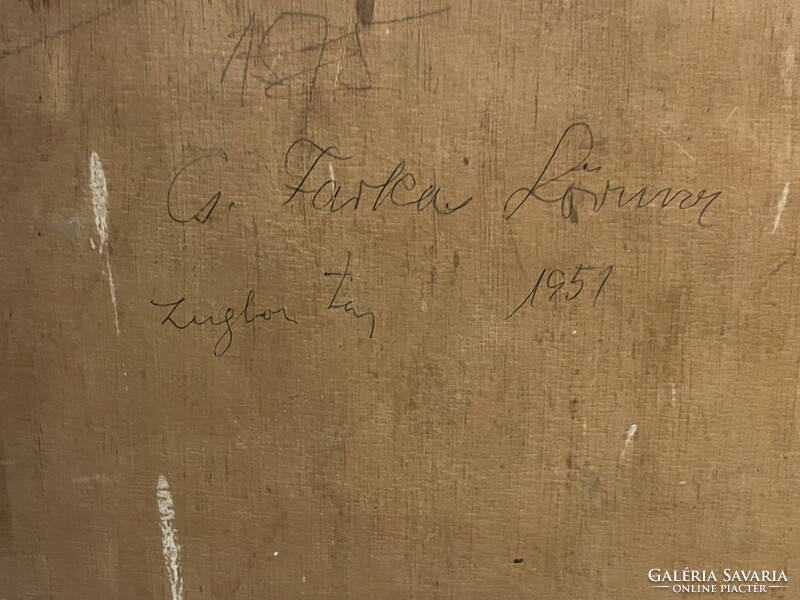 1975
Cs. Farkas Lőrinc
zugbon táj 1951
GALÉRIA SAVARIA
ONLINE PIACTÉR